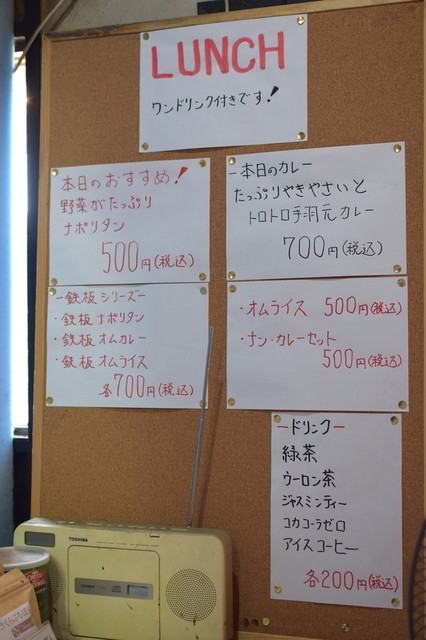 LUNCH
ワンドリンク付きです!
本日のおすすめ!
野菜がたっぷり
ナポリタン
500円(税込)
ー本日のカレー
たっぷりやきやさいと
トロトロ手羽元カレー
700円(税込)
ー鉄板シリーズー
・鉄板ナポリタン
・鉄板オムカレー
・鉄板オムライス
各700円(税込)
・オムライス 500円(税込)
・ナン・カレーセット
500円(税込)
ードリンクー
緑茶
ウーロン茶
ジャスミンティー
コカコーラゼロ
アイスコーヒー
各200円(税込)
TOSHIBA